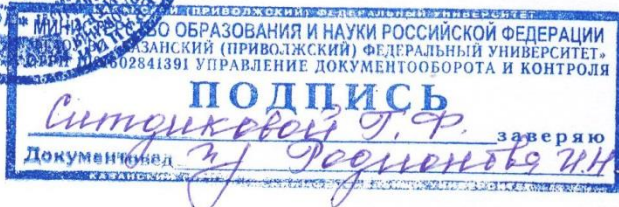 КАЗАНСКИЙ (ПРИВОЛЖСКИЙ) ФЕДЕРАЛЬНЫЙ УНИВЕРСИТЕТ
МИНИ ВО ОБРАЗОВАНИЯ И НАУКИ РОССИЙСКОЙ ФЕДЕРАЦИИ
КАЗАНСКИЙ (ПРИВОЛЖСКИЙ) ФЕДЕРАЛЬНЫЙ УНИВЕРСИТЕТ»
602841391 УПРАВЛЕНИЕ ДОКУМЕНТООБОРОТА И КОНТРОЛЯ
ПОДПИСЬ
Ситдиковой Г. Ф. заверяю
Документовед Родионова И.Н